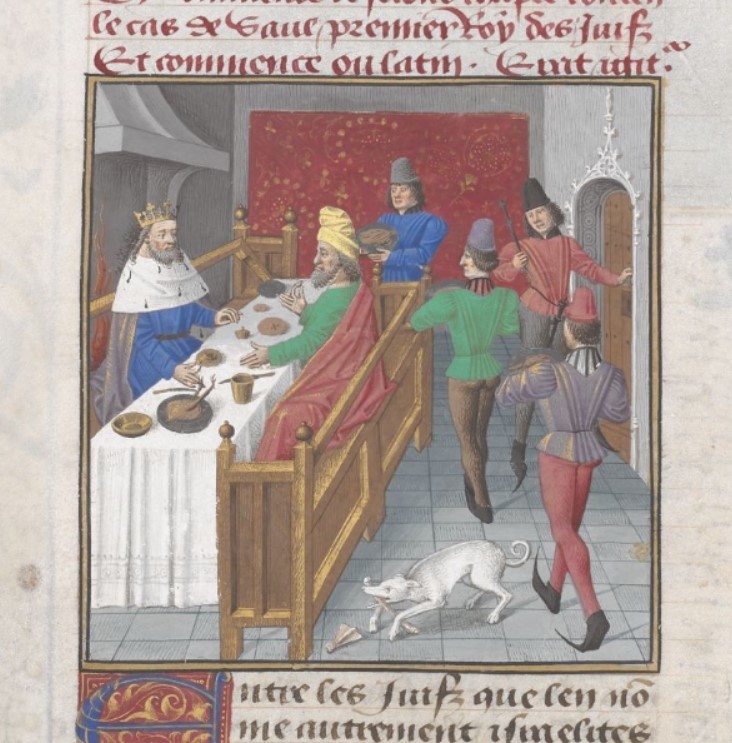 le cas de Saul premier Roy des Juifz
Et commence ou latin. Erat
Entre les Juifz que len nō
me autrement israelites